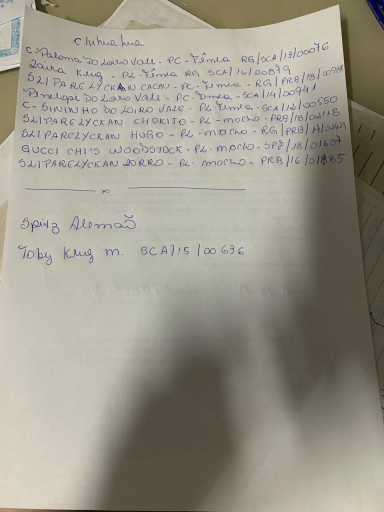 Chihuahua
C. Paloma Do Loiro Vale - PC - Fêmia RG/SCA/13/00076
Zaira Klug - PL - Fêmia RG SCA/16/00879
SLIPARELYCKAN CACAU - PC - Fêmia - RG/PRB/18/
Penelope Do Loiro Vale - PC - Fêmia - SCA/14/00941
C- SININHO DO LOIRO VALE - PL - Fêmia - SCA/12/00550
SLIPARELYCKAN CHOKITO - PL - macho - PRB/18/02118
SLIPARELYCKAN HUGO - PL - macho - RG/PRB/17/
GUCCI CHI'S WOODSTOCK - PL - macho - SPF/18/01607
SLIPARELYCKAN ZORRO - PL - macho - PRB/16/01885
x
Spitz Alemão
Toby Klug m. SCA/15/00696